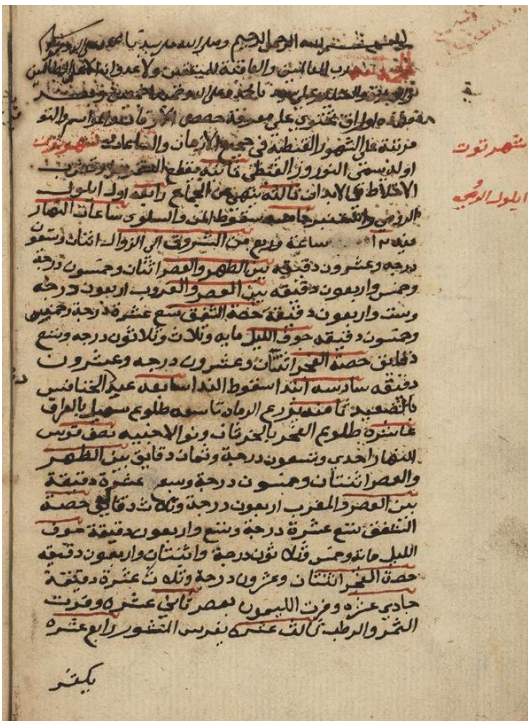 بسم الله الرحمن الرحيم وصلى الله على سيدنا محمد
رب العالمين والعاقبة للمتقين ولا عدوان الا على الظالمين
اوراق تحتوي على معرفة حصص
مرتبة على الشهور القبطية في جميع الازمان والساعات شهر توت
اوله يسمى النوروز القبطي ثانيه مقطع
الاخلاط في الابدان ثالثه ينهى عن الجماع رابعه اول ايلول
الرومي خامسه سقوط المن والسلوى ساعات النهار
فيه ١٢ ساعة وربع من الشروق الى الزوال اثنان وتسعون
درجه وعشرون دقيقه بين الظهر والعصر اثنتان وخمسون درجة
وخمس واربعون دقيقه بين العصر والغروب اربعون درجه
وست واربعون دقيقة حصة الشفق تسع عشرة درجة وخمس
وخمسون دقيقه جوف الليل مايه وثلاث وثلاثون درجه وتسع
دقايق حصة الفجر اثنتان وعشرون درجه وعشرون
دقيقه سادسه ابتدا سقوط الندا سابعه عيد
بالصعيد ثامنه يزرع الرمان تاسعه طلوع سهيل بالعراق
عاشره طلوع الفجر بالخرثان ونو الاخبيه نصف قوس
النهار احدى وتسعون درجة وثمان دقايق بين الظهر
والعصر اثنتان وخمسون درجة وسبع عشرة دقيقة
بين العصر والمغرب اربعون درجة وثلاث دقايق حصة
الشفق تسع عشرة درجة وتسع واربعون دقيقة جوف
الليل مايه وخمس وثلاثون درجة واثنتان واربعون دقيقه
حصة الفجر اثنتان وعشرون درجة وثلاث عشرة دقيقة
حادي عشره وفرت الليمون بمصر ثاني عشره وفرت
التمر والرطب ثالث عشره يغرس المنثور رابع عشره
يكثر
شهر توت
ايلول الرومي